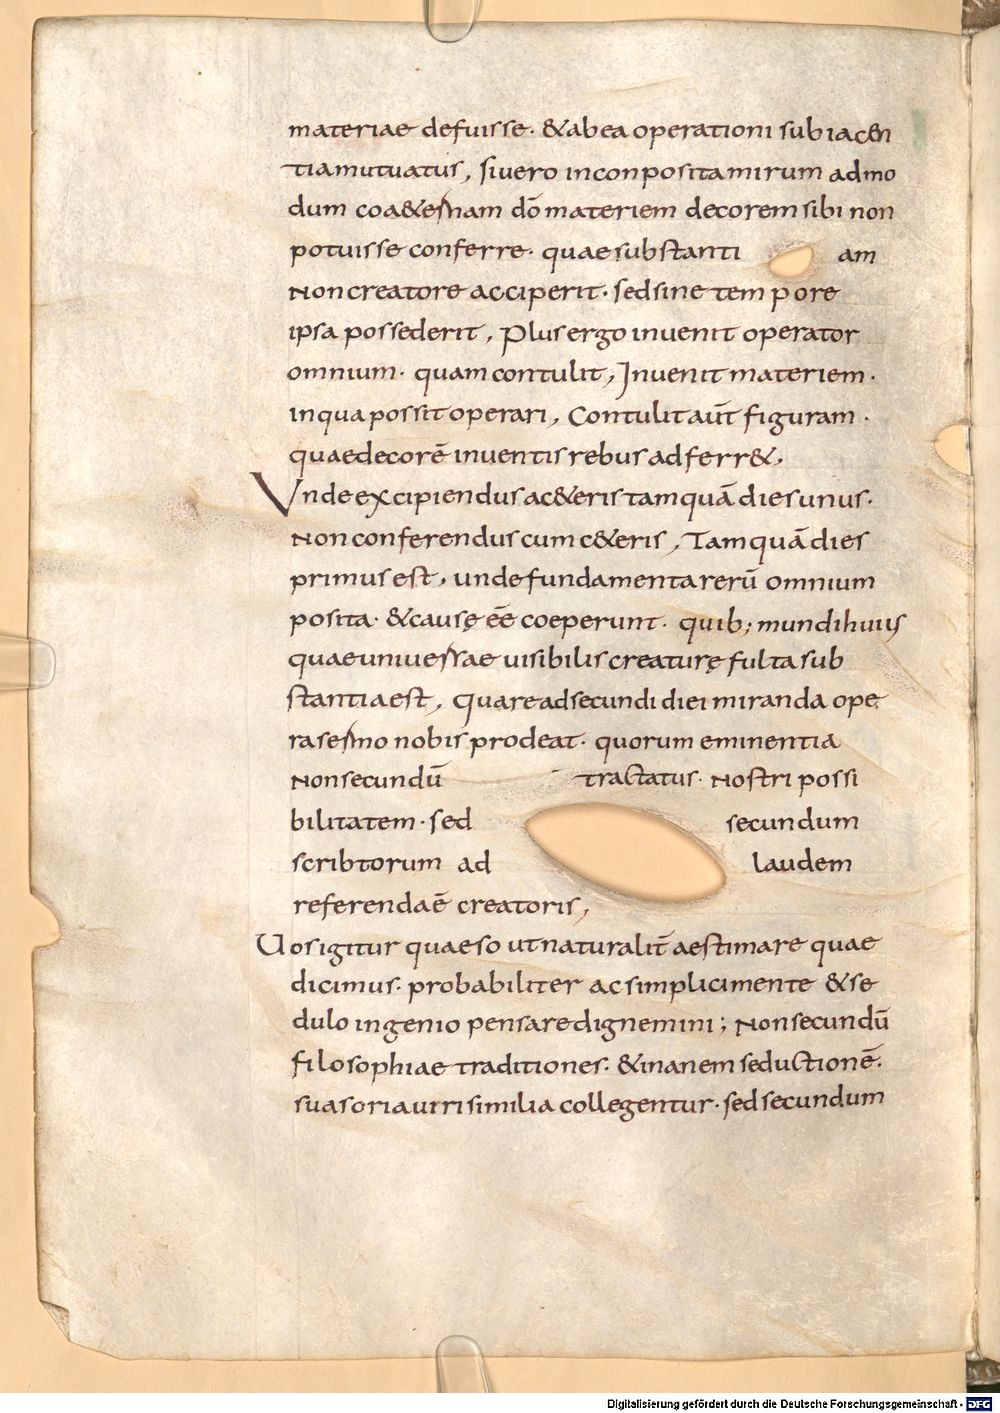 materiae defuisse· &abea operationi subiac&n
tiamutuatus, sivero inconpositamirum admo
dum coa&ernam dō materiem decoremsibi non
potuisse conferre· quaesubstanti am
Noncreatore acciperit· sedsine tempore
ipsa possederit, Plusergo invenit operator
omnium· quam contulit, Invenit materiem·
inqua possit operari, Contulit aūt figuram·
quaedecorē inventis rebus adferr&,
Unde excipiendus ac&eris tamquā dies unus·
Non conferendus cum c&eris, Tamquā dies
primus est, unde fundamenta rerū omnium
posita· &causę ēē coeperunt· quib; mundi huius
quae universae visibilis creaturę fulta sub
stantia est, Quare adsecundi diei miranda ope
ra sermo nobis prodeat· quorum eminentia
Nonsecundū tractatus· Nostri possi
bilitatem· sed secundum
scribtorum ad laudem
referenda ē creatoris,
Uos igitur quaeso ut naturalit̄ aestimare quae
dicimus· probabiliter ac simplici mente &se
dulo ingenio pensare dignemini; Nonsecundū
filosophiae traditiones· &inanem seductionē·
suasoria uirisimilia collegentur· sed secundum
Digitalisierung gefördert durch die Deutsche Forschungsgemeinschaft - DFG